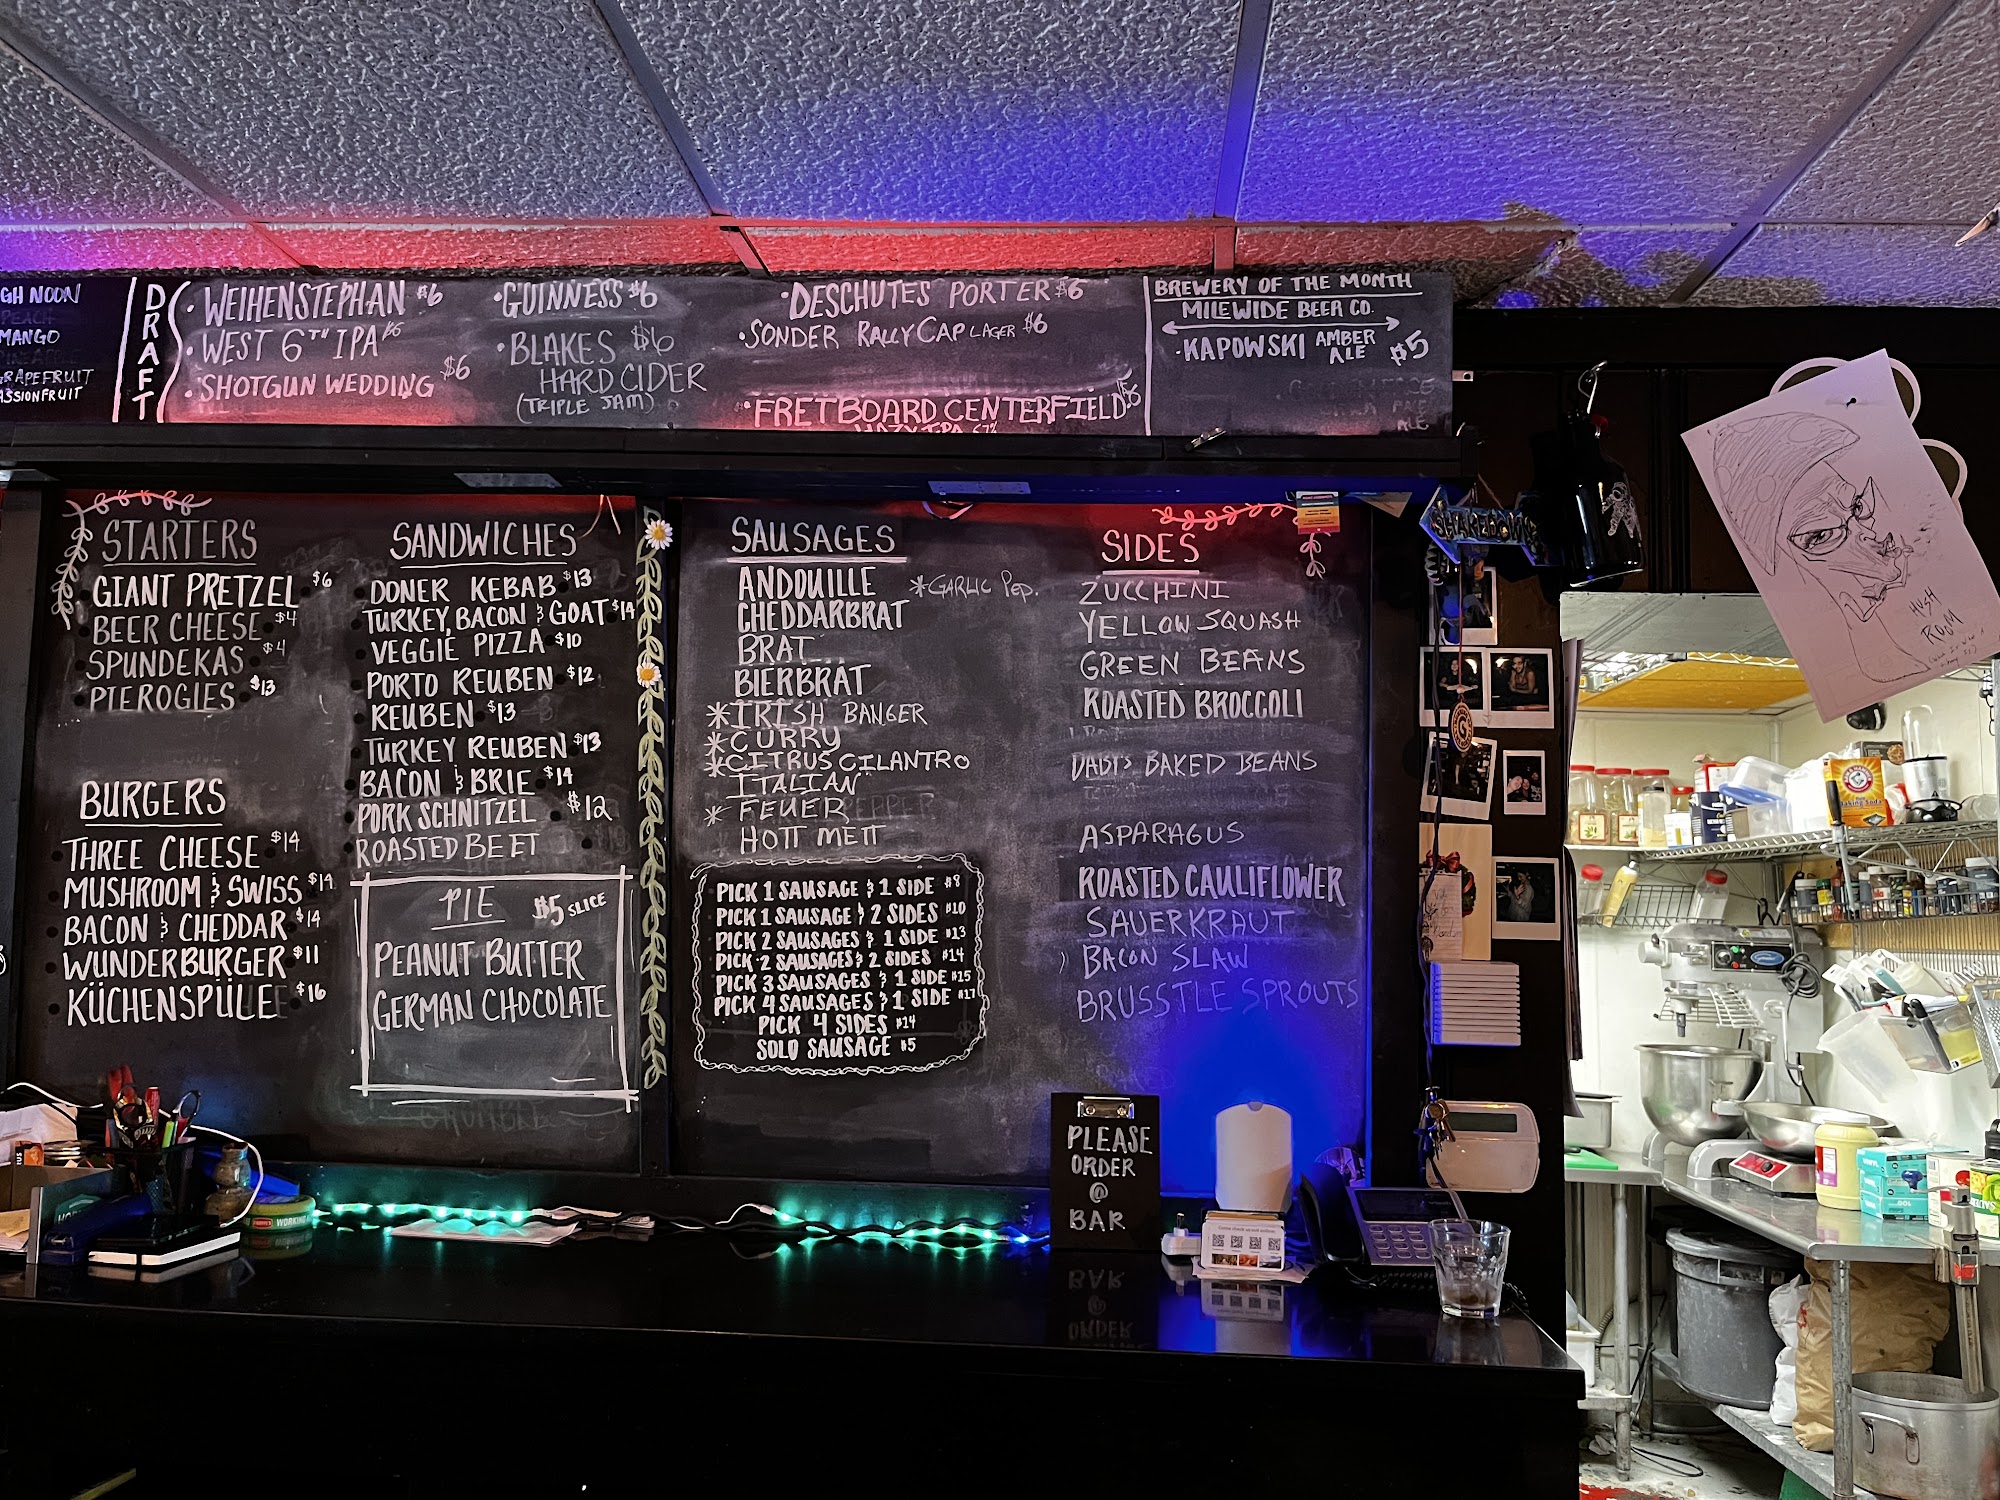 GH NOON
PEACH
MANGO
PINEAPPLE
GRAPEFRUIT
ASSIONFRUIT
DRAFT
· WEIHENSTEPHAN $6
· WEST 6TH IPA $6
· SHOTGUN WEDDING $6
· GUINNESS $6
· BLAKES $6
HARD CIDER
(TRIPLE JAM)
· DESCHUTES PORTER $6
· SONDER RALLY CAP LAGER $6
· FRETBOARD CENTERFIELD $6
HAZY IPA
BREWERY OF THE MONTH
MILEWIDE BEER CO.
· KAPOWSKI AMBER ALE $5
ALE
STARTERS
GIANT PRETZEL $6
BEER CHEESE $4
SPUNDEKAS $4
PIEROGIES $13
BURGERS
THREE CHEESE $14
MUSHROOM & SWISS $14
BACON & CHEDDAR $14
WUNDERBURGER $11
KÜCHENSPÜLE $16
SANDWICHES
DONER KEBAB $13
TURKEY, BACON & GOAT $14
VEGGIE PIZZA $10
PORTO REUBEN $12
REUBEN $13
TURKEY REUBEN $13
BACON & BRIE $14
PORK SCHNITZEL $12
ROASTED BEET
PIE $5 SLICE
PEANUT BUTTER
GERMAN CHOCOLATE
SAUSAGES
ANDOUILLE *GARLIC PEP.
CHEDDARBRAT
BRAT
BIERBRAT
*IRISH BANGER
*CURRY
*CITRUS CILANTRO
ITALIAN
* FEUER PEPPER
HOTT METT
PICK 1 SAUSAGE & 1 SIDE $8
PICK 1 SAUSAGE & 2 SIDES $10
PICK 2 SAUSAGES & 1 SIDE $13
PICK 2 SAUSAGES & 2 SIDES $14
PICK 3 SAUSAGES & 1 SIDE $15
PICK 4 SAUSAGES & 1 SIDE $17
PICK 4 SIDES $14
SOLO SAUSAGE $5
SIDES
ZUCCHINI
YELLOW SQUASH
GREEN BEANS
ROASTED BROCCOLI
DADI'S BAKED BEANS
ASPARAGUS
ROASTED CAULIFLOWER
SAUERKRAUT
BACON SLAW
BRUSSTLE SPROUTS
PLEASE
ORDER
@
BAR
HUSH
ROOM